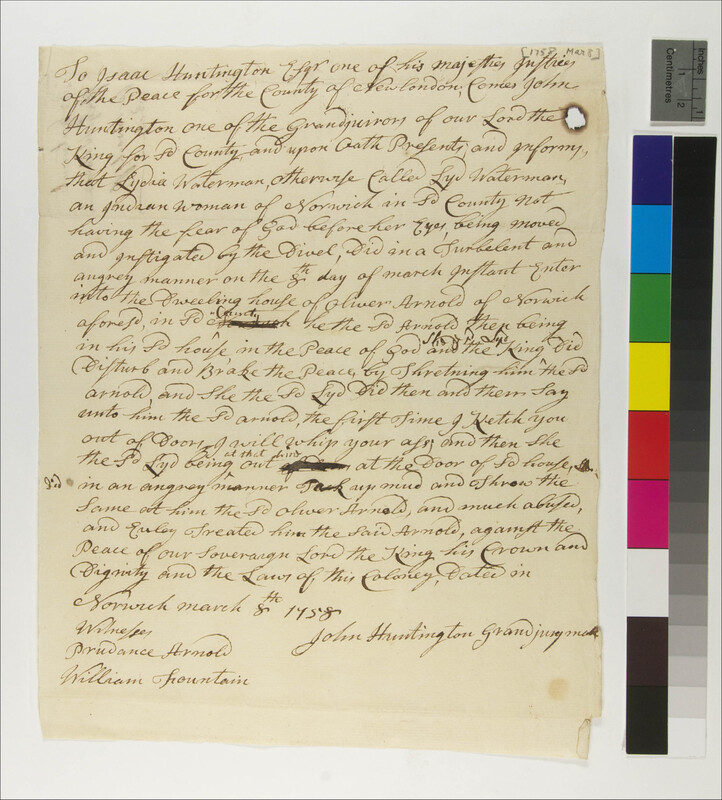 [1758 Mar 8]
To Isaac Huntington Esqr one of his majesties Justices
of the Peace for the County of New London, Comes John
Huntington one of the Grandjuirors of our Lord the
King for Sd County, and upon Oath Presents, and Informs,
that Lydia Waterman, otherwise Called Lyd Waterman,
an Indian woman of Norwich in Sd County Not
having the fear of God before her Eyes, being moved
and Instigated by the Divel, Did in a Turbelent and
angrey manner on the 8th day of march Instant Enter
into the Dweeling house of Oliver Arnold of Norwich
aforesd, in Sd County he the Sd Arnold then being
in his Sd house, in the Peace of God and the King Did
She ye Sd Lyd
Disturb and Brake the Peace, by Thretning him the Sd
arnold, and She the Sd Lyd Did then and there Say
unto him the Sd arnold, the first Time I Ketch you
out of Doors, I will whip your ass, and then She
the Sd Lyd being out at that time at the Door of Sd house,
in an angrey manner Took up mud and Throw the
Same at him the Sd Oliver Arnold, and much abused,
and Eveley Treated him the Said Arnold, against the
Peace of our Soveraign Lord the King his Crown and
Dignity and the Laws of this Caloney, Dated in
Norwich march 8th 1758
Witneses
John Huntington Grandjury man
Prudance Arnold
William Fountain
Inches
Centimetres
1
2